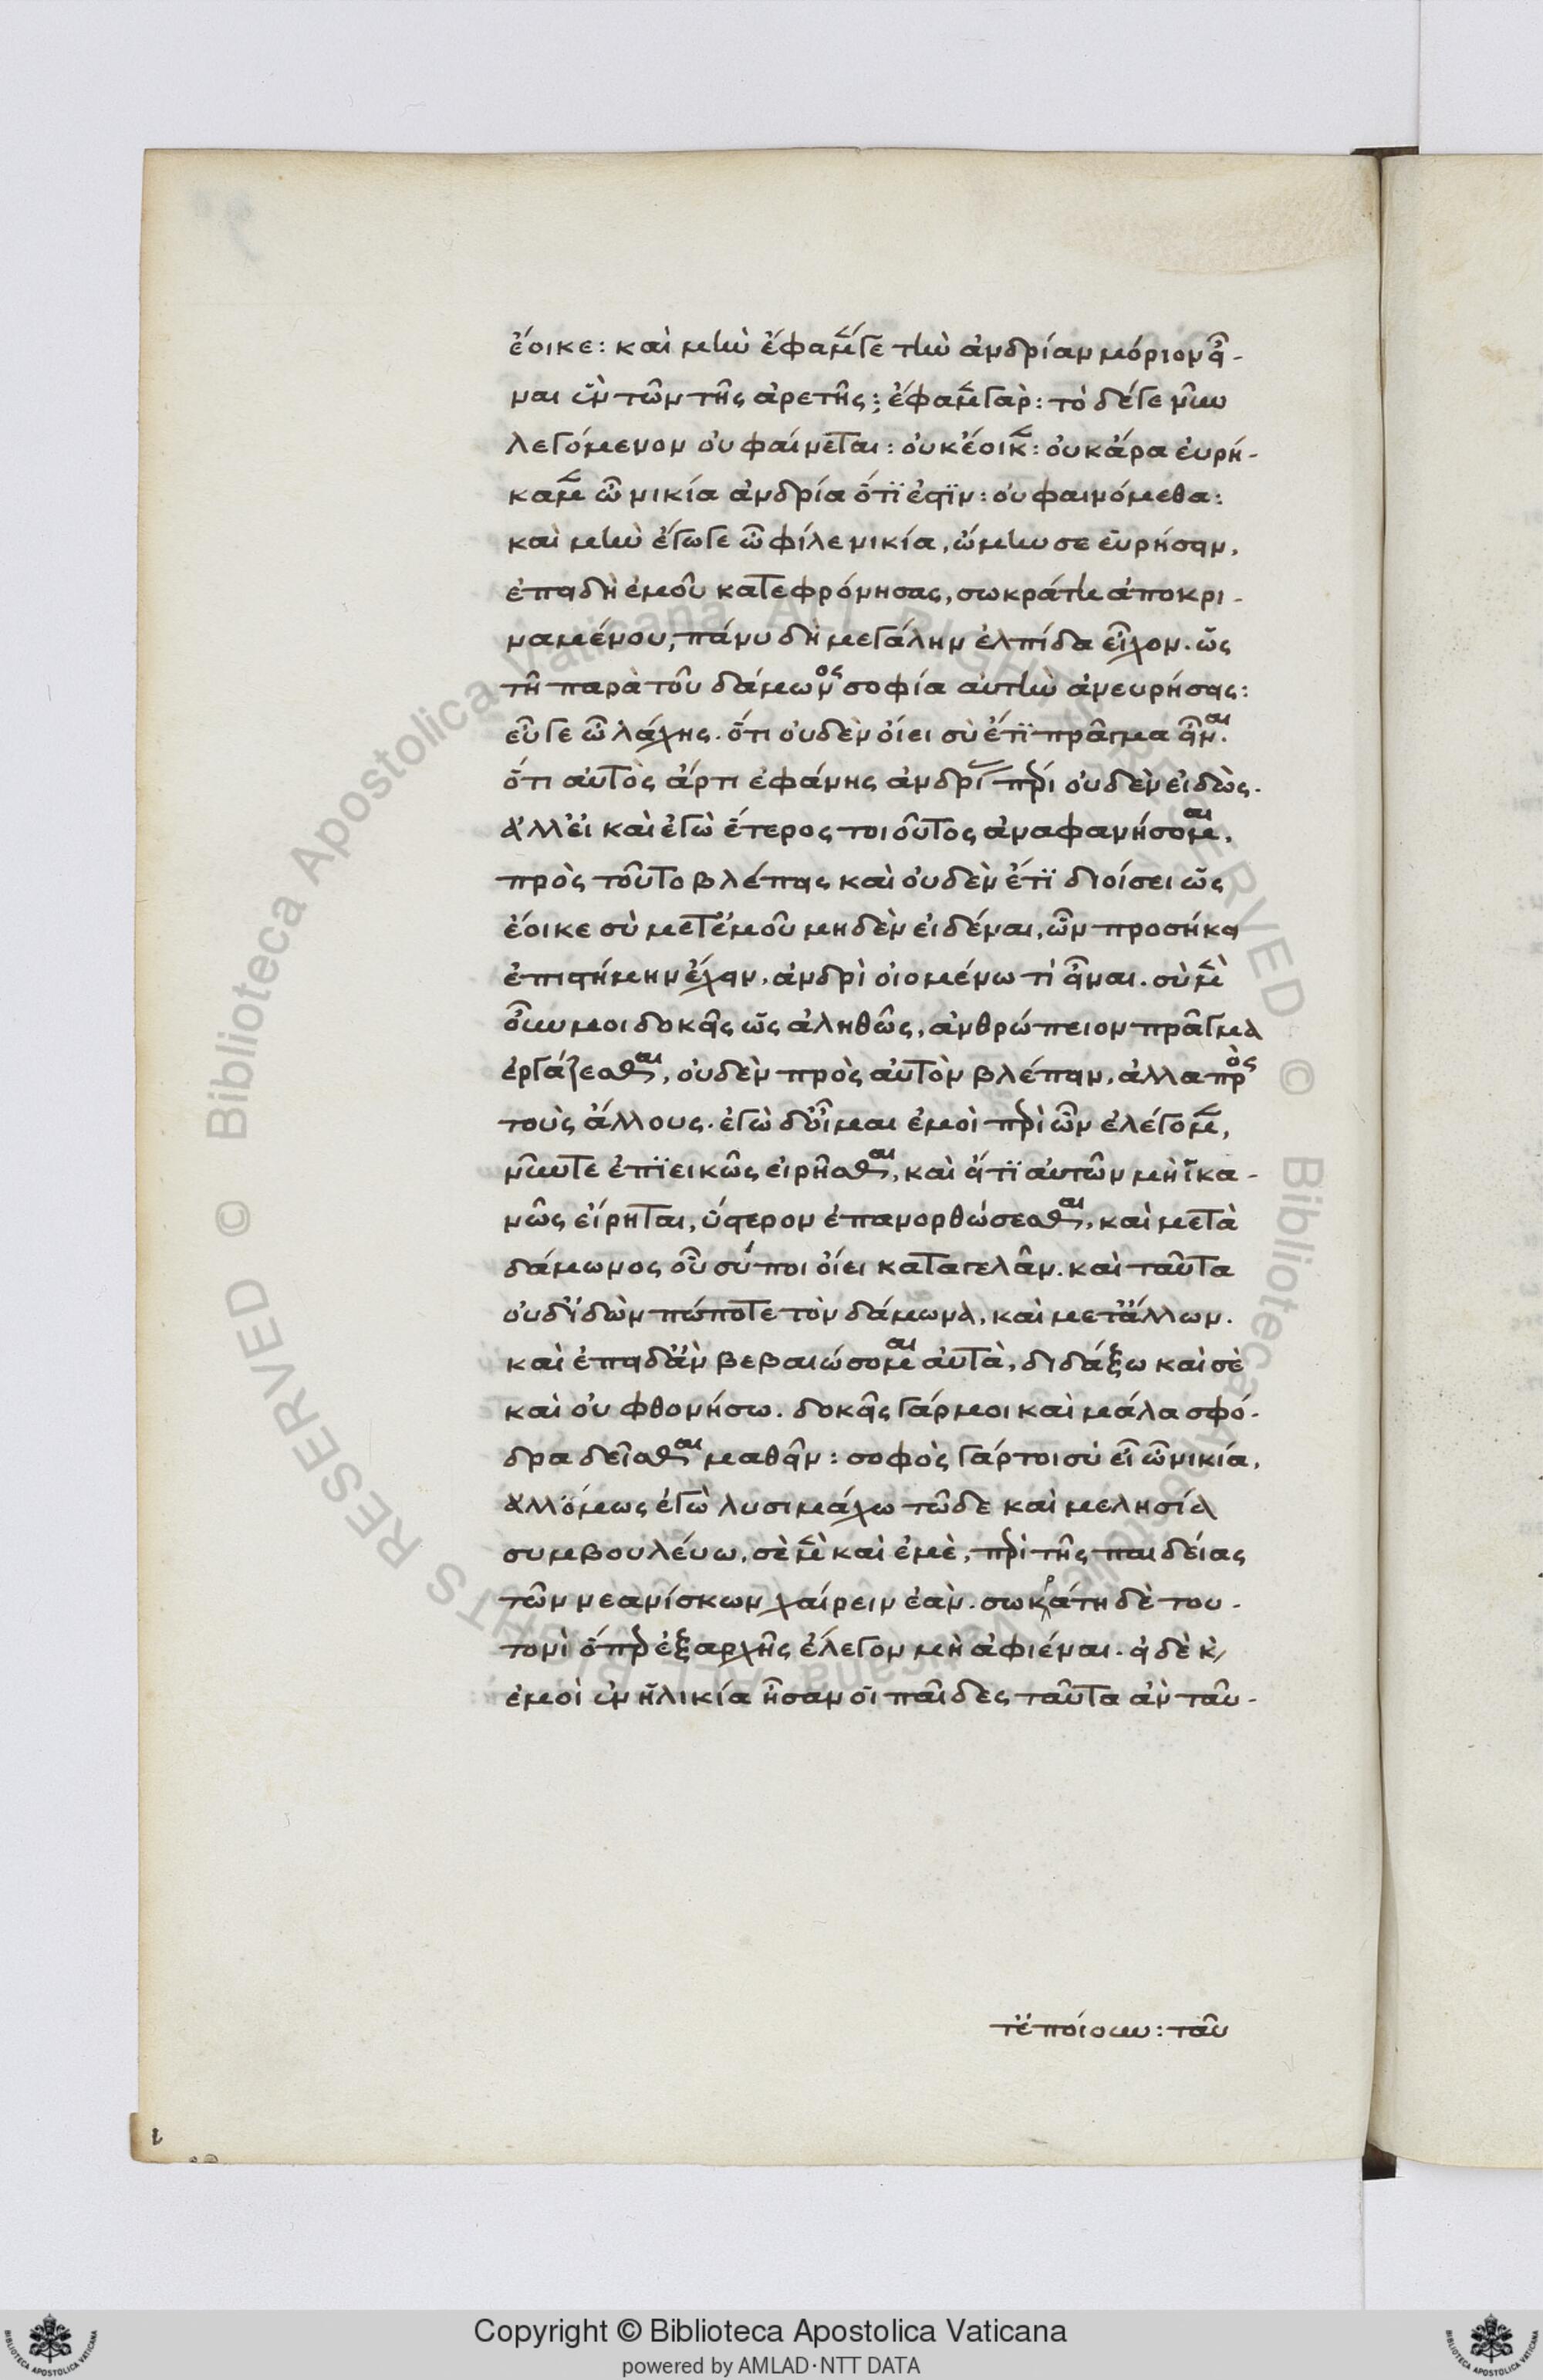 ἔοικε: καὶ μὴν ἔφαμέν γε τὴν ἀνδρίαν μόριον εἶ-
ναι ἓν τῶν τῆς ἀρετῆς; ἔφαμεν γὰρ: τὸ δέ γε νῦν
λεγόμενον οὐ φαίνεται: οὐκ ἔοικεν: οὐκ ἄρα εὑρή-
καμεν ὦ νικία ἀνδρία ὅτι ἐστὶν: οὐ φαινόμεθα:
καὶ μὴν ἔγωγε ὦ φίλε νικία, ὤμην σε εὑρήσειν,
ἐπειδὴ ἐμοῦ κατεφρόνησας, σωκράτη ἀποκρι-
ναμένου, πάνυ δὴ μεγάλην ἐλπίδα εἶχον. ὡς
τῆ παρὰ τοῦ δάμωνος σοφία αὐτὴν ἀνευρήσεις:
εὖ γε ὦ λάχης. ὅτι οὐδὲν οἴει σὺ ἔτι πρᾶγμα εἶναι.
ὅτι αὐτὸς ἄρτι ἐφάνης ἀνδρίας πέρι οὐδὲν εἰδὼς.
ἀλλ' εἰ καὶ ἐγὼ ἕτερος τοιοῦτος ἀναφανήσομαι,
πρὸς τοῦτο βλέπεις καὶ οὐδὲν ἔτι διοίσει ὡς
ἔοικε σὺ μετ' ἐμοῦ μηδὲν εἰδέναι, ὧν προσήκει
ἐπιστήμην ἔχειν, ἀνδρὶ οἰομένω τὶ εἶναι. σὺ μὲν
οὖν μοι δοκεῖς ὡς ἀληθῶς, ἀνθρώπειον πρᾶγμα
ἐργάζεσθαι, οὐδὲν πρὸς αὑτὸν βλέπειν, ἀλλα πρὸς
τοὺς ἄλλους. ἐγὼ δ' οἶμαι ἐμοὶ περὶ ὧν ἐλέγομεν,
νῦν τε ἐπιεικῶς εἰρῆσθαι, καὶ εἴ τι αὐτῶν μὴ ἱκα-
νῶς εἴρηται, ὕστερον ἐπανορθώσεσθαι, καὶ μετὰ
δάμωνος οὗ σύ ποι οἴει καταγελᾶν. καὶ ταῦτα
οὐδ' ἰδὼν πώποτε τὸν δάμωνα, καὶ μετ' ἄλλων.
καὶ ἐπειδἂν βεβαιώσομαι αὐτὰ, διδάξω καὶ σὲ
καὶ οὐ φθονήσω. δοκεῖς γάρ μοι καὶ μάλα σφό-
δρα δεῖσθαι μαθεῖν: σοφὸς γάρ τοι σὺ εἶ ὦ νικία,
ἀλλ' ὅμως ἐγὼ λυσιμάχω τῶδε καὶ μελησία
συμβουλεύω, σὲ μὲν καὶ ἐμὲ, περὶ τῆς παιδείας
τῶν νεανίσκων χαίρειν ἐᾶν. σωκράτη δὲ του-
τονὶ ὅπερ ἐξαρχῆς ἔλεγον μὴ ἀφιέναι. εἰ δὲ κ̀
ἐμοὶ ἐν ἡλικία ἦσαν οἱ παῖδες ταῦτα ἂν ταῦ-
τ' ἐποίουν: ταῦ
ι
Copyright © Biblioteca Apostolica Vaticana
powered by AMLAD·NTT DATA